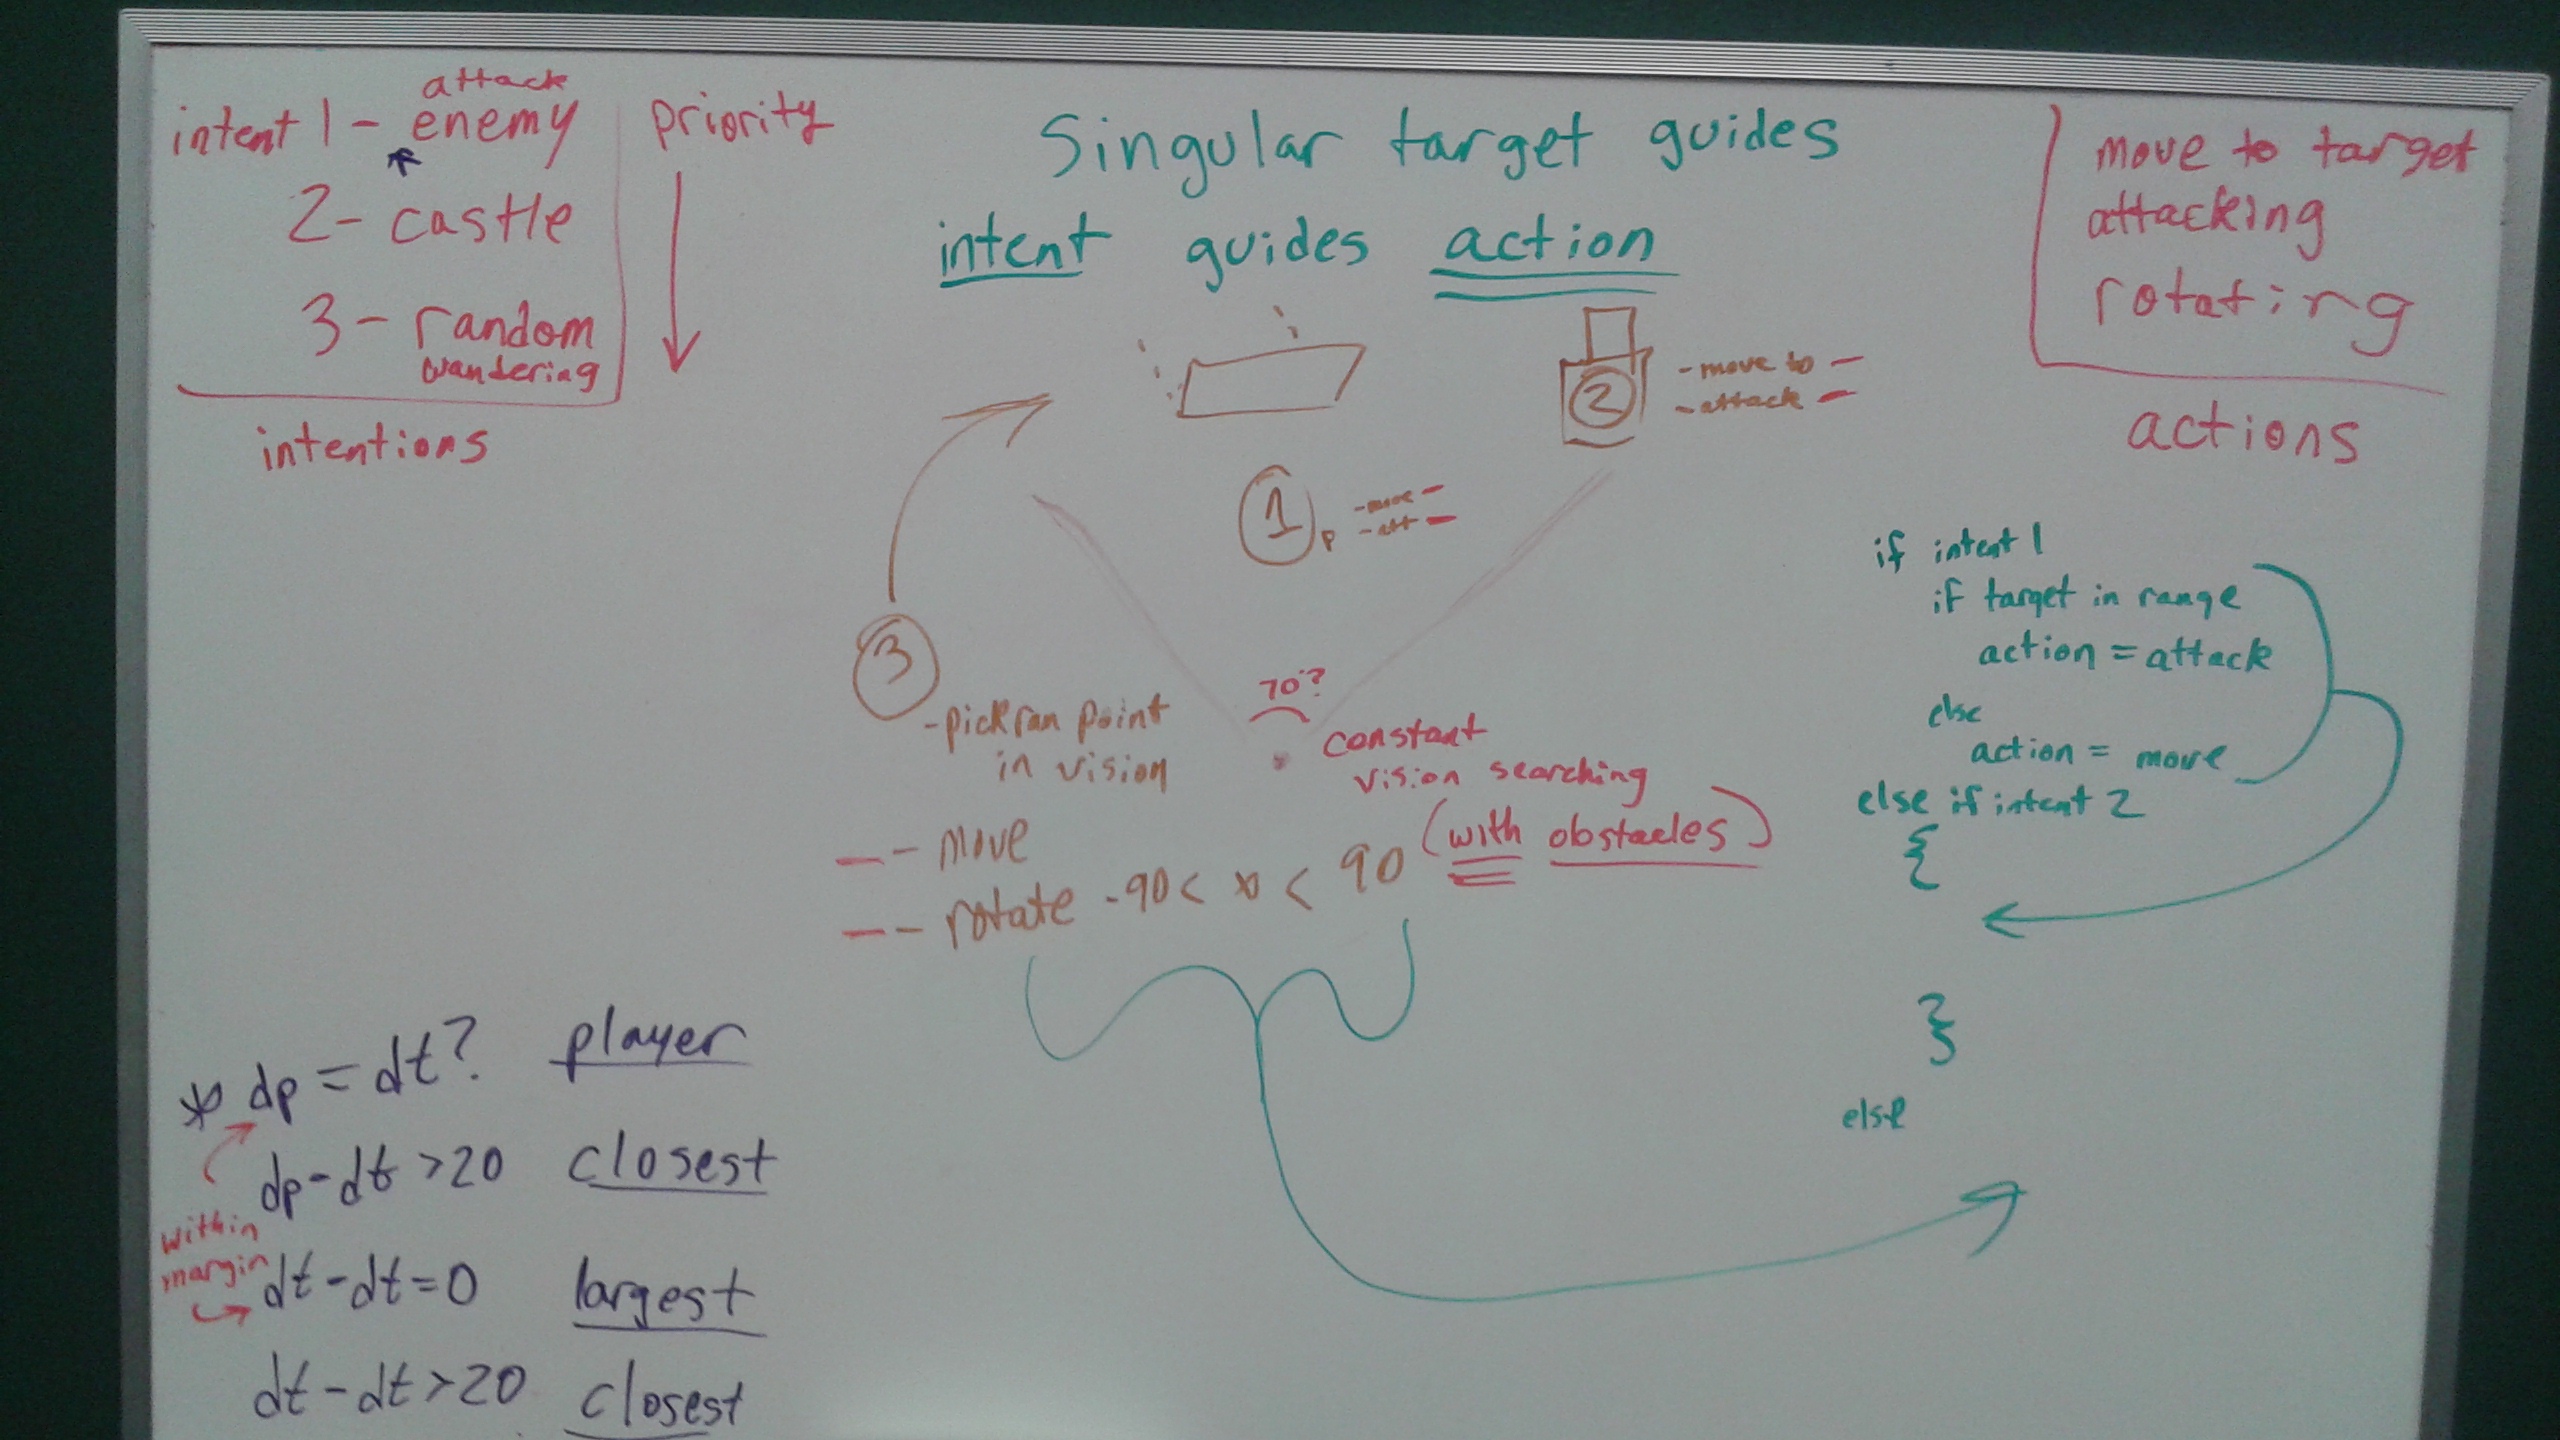 attack
intent 1 - enemy
2 - castle
3 - random
wandering
intentions
priority
Singular target guides
intent guides action
move to target
attacking
rotating
actions
2
- move to -
- attack -
1 P
- move -
- att -
3
- pick ran point
in vision
- - move
- - rotate -90 < x < 90
70°?
constant
vision searching
(with obstacles)
if intent 1
if target in range
action = attack
else
action = move
else if intent 2
{
}
else
* dp = dt? player
dp - dt > 20 closest
within
margin
dt - dt = 0 largest
dt - dt > 20 closest